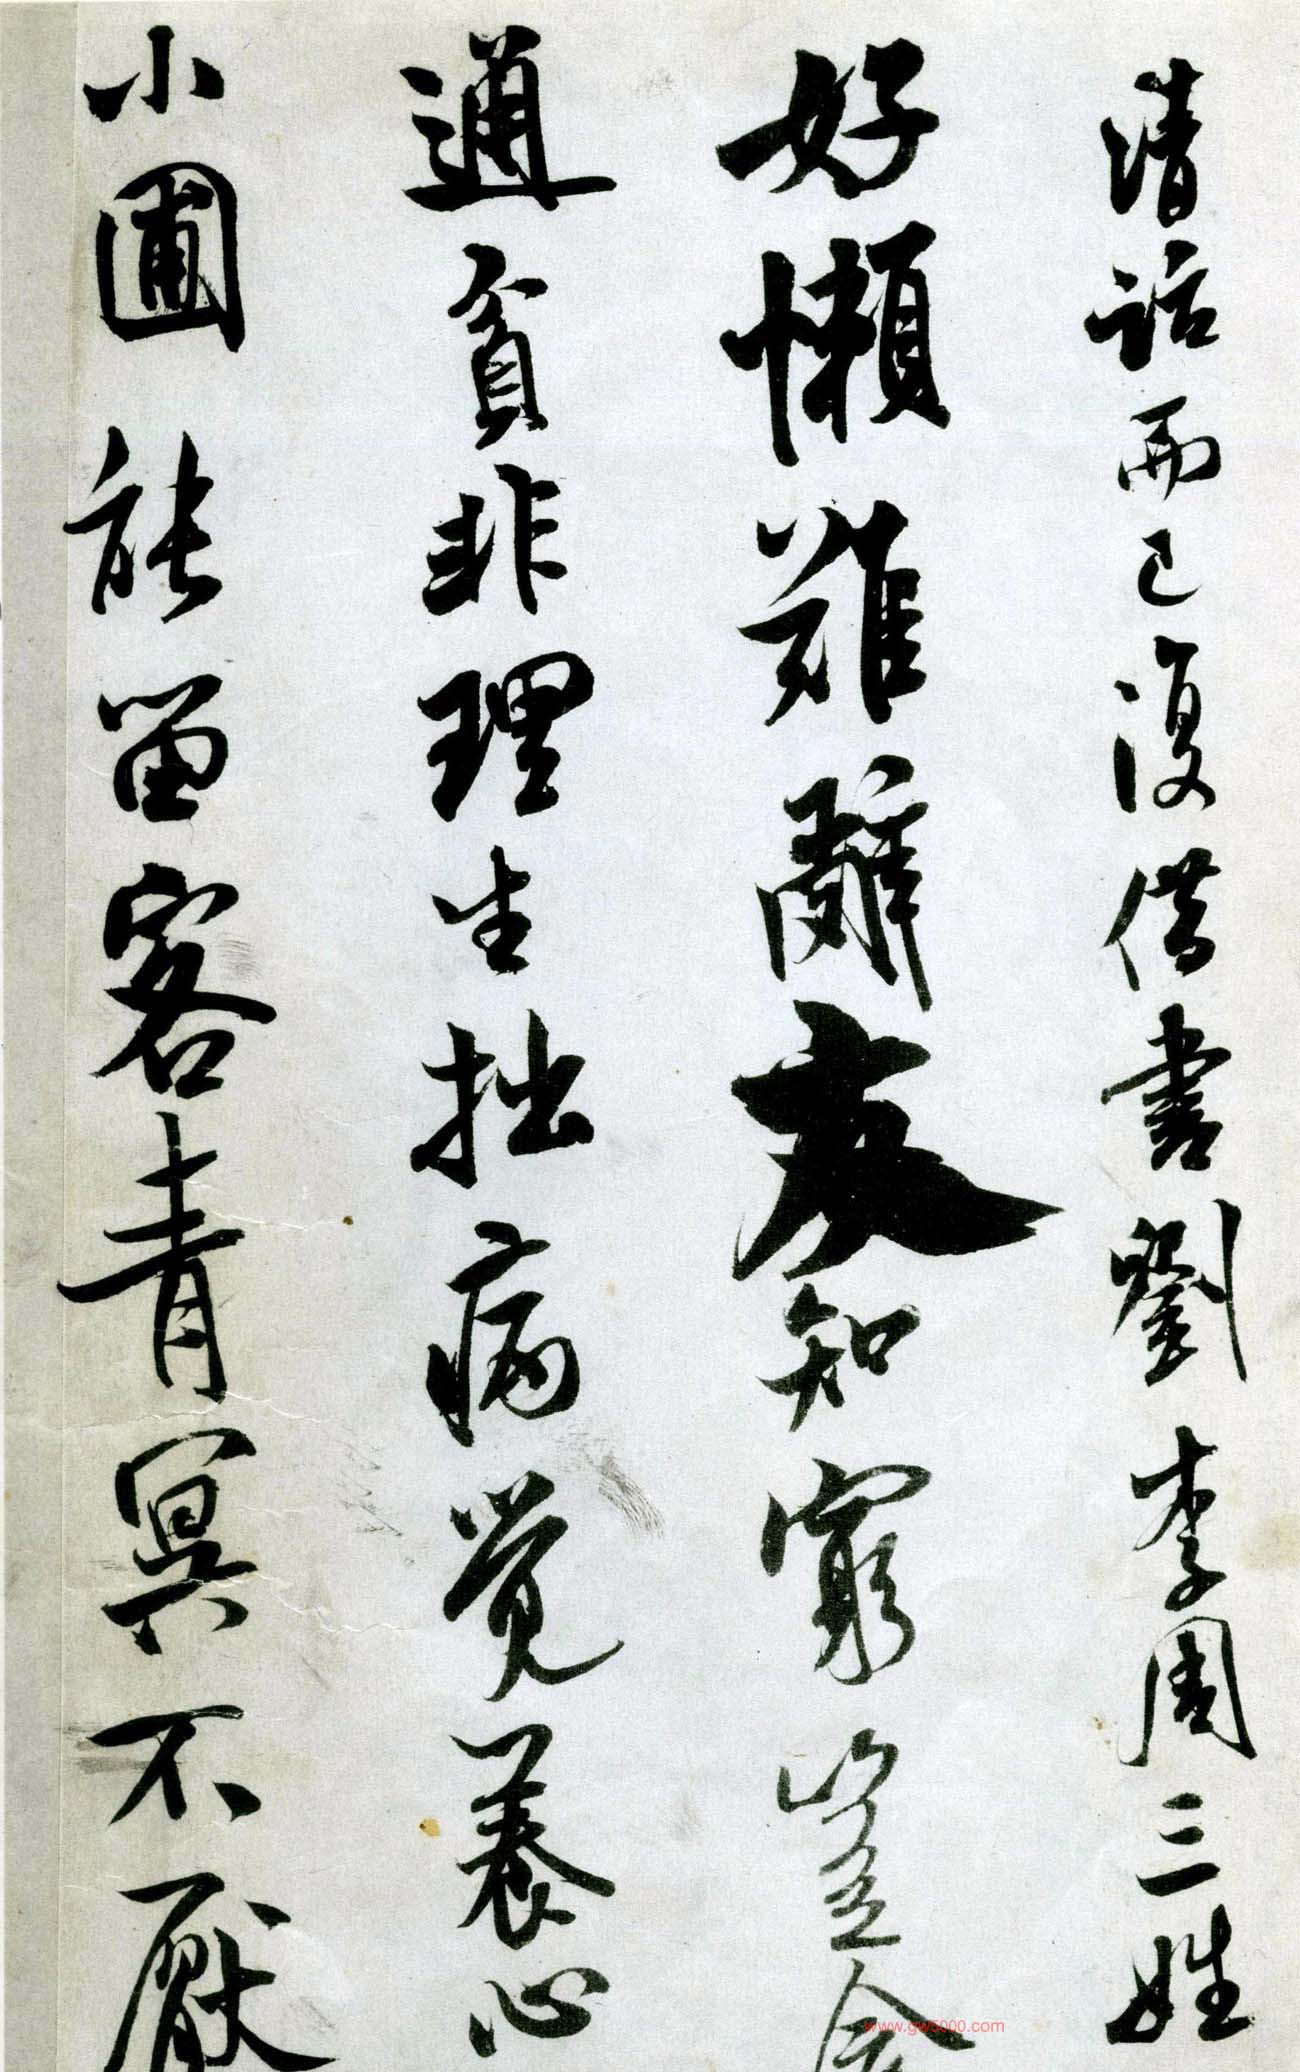 清話而已復借書劉李周三姓
好懶難辭友知窮豈念
通貧非理生拙病覺養心
小圃能留客青冥不厭
www.gw6000.com